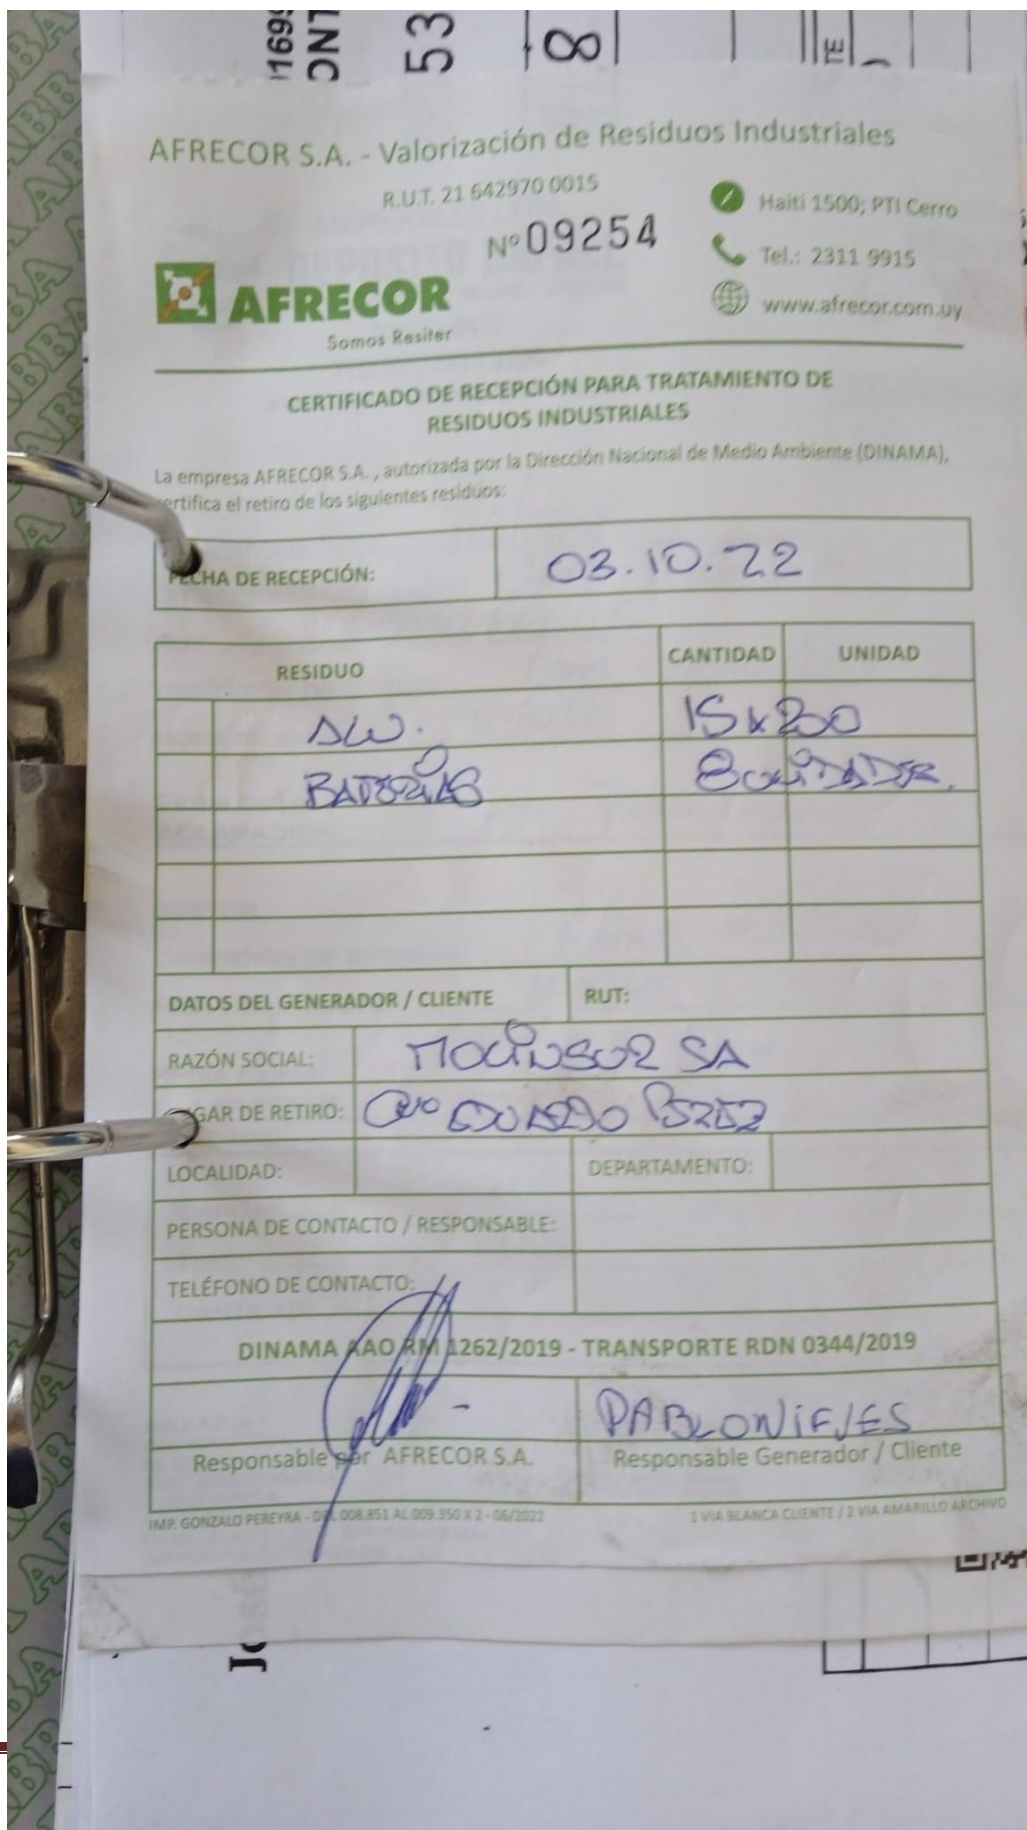 53
8
TE
AFRECOR S.A. - Valorización de Residuos Industriales
R.U.T. 21 642970 0015
Nº 09254
Haiti 1500; PTI Cerro
Tel.: 2311 9915
www.afrecor.com.uy
AFRECOR
Somos Resiter
CERTIFICADO DE RECEPCIÓN PARA TRATAMIENTO DE
RESIDUOS INDUSTRIALES
La empresa AFRECOR S.A. , autorizada por la Dirección Nacional de Medio Ambiente (DINAMA),
certifica el retiro de los siguientes residuos:
FECHA DE RECEPCIÓN: 03.10.22
RESIDUO CANTIDAD UNIDAD
15x200
BATERIAS 8 UNIDADES.
DATOS DEL GENERADOR / CLIENTE RUT:
RAZÓN SOCIAL: SA
LUGAR DE RETIRO: EDUARDO PEREZ
LOCALIDAD: DEPARTAMENTO:
PERSONA DE CONTACTO / RESPONSABLE:
TELÉFONO DE CONTACTO:
DINAMA AAO RM 1262/2019 - TRANSPORTE RDN 0344/2019
PABLO
Responsable por AFRECOR S.A. Responsable Generador / Cliente
IMP. GONZALO PEREYRA - DEL 008.851 AL 009.350 X 2 - 06/2022 1 VIA BLANCA CLIENTE / 2 VIA AMARILLO ARCHIVO